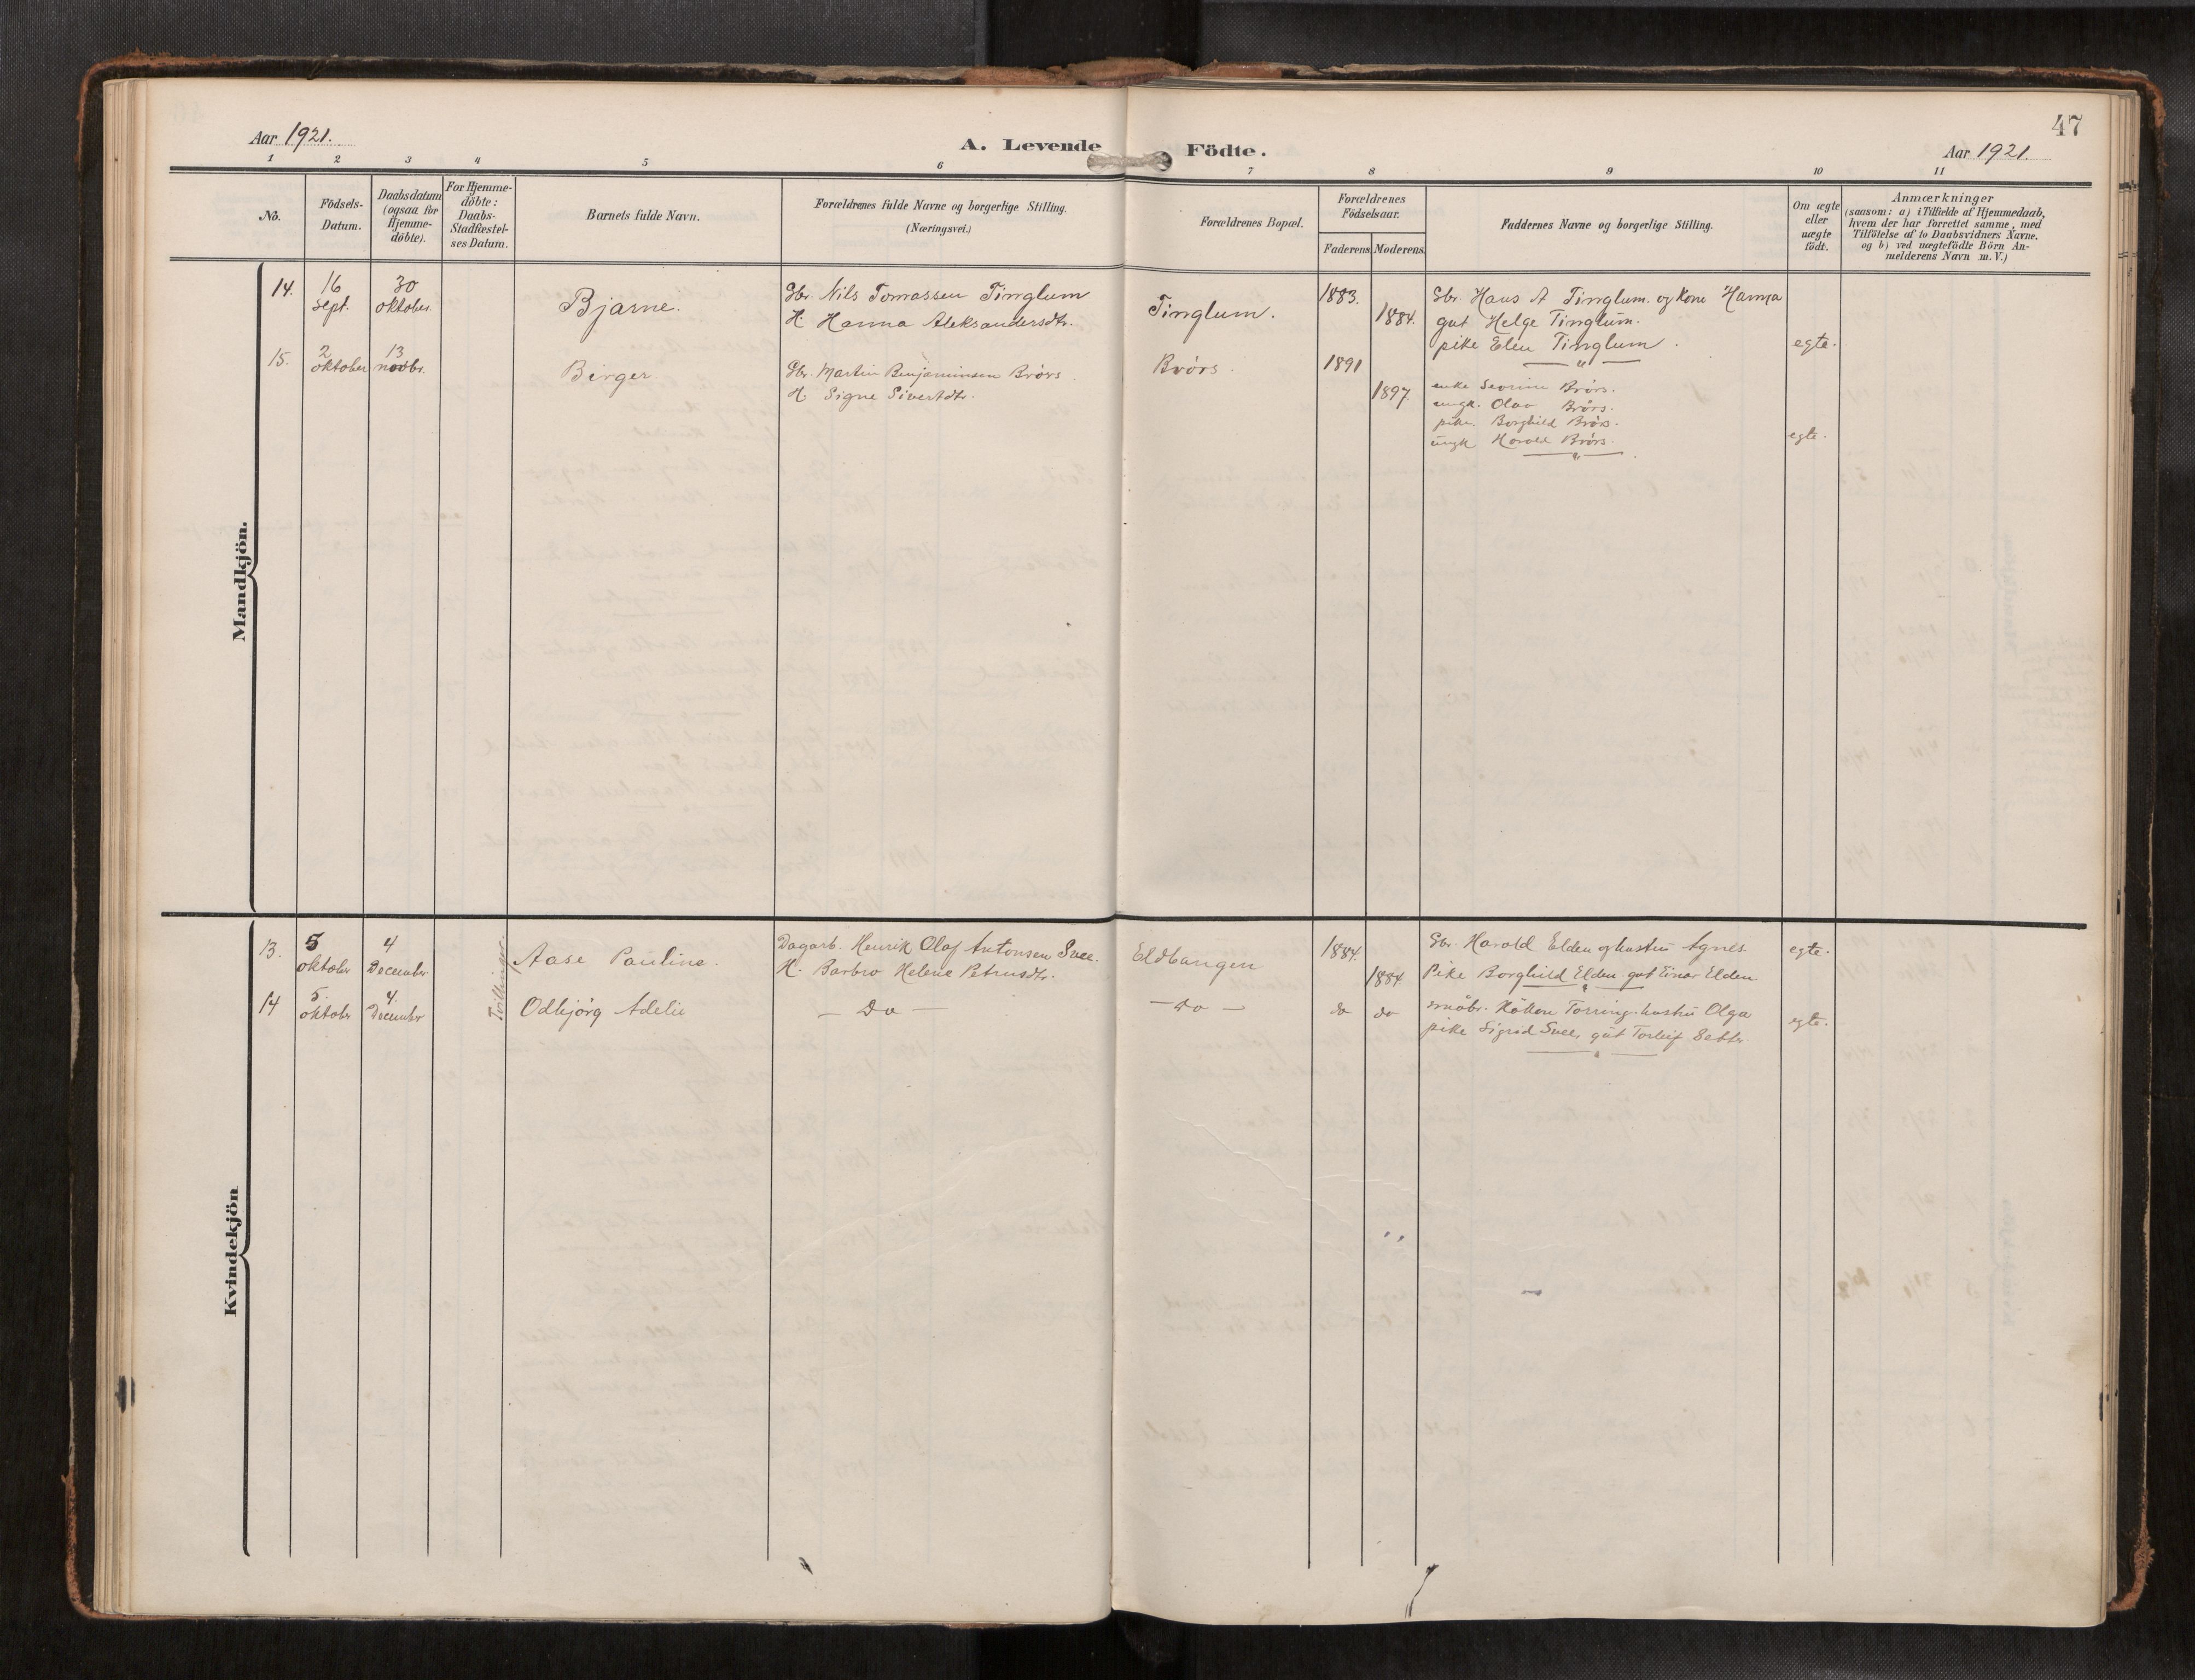 47
Aar 1921.
A. Levende Födte.
Aar 1921.
1 2 3 4 5 6 7 8 9 10 11
No.
Födsels-
Datum.
Daabsdatum
(ogsaa for
Hjemme-
döbte).
For Hjemme-
döbte:
Daabs-
Stadfæstel-
ses Datum.
Barnets fulde Navn.
Forældrenes fulde Navne og borgerlige Stilling.
(Næringsvei.)
Forældrenes Bopæl.
Forældrenes
Födselsaar.
Faderens
Moderens
Faddernes Navne og borgerlige Stilling.
Om ægte
eller
uægte
födt.
Anmærkninger
(saasom: a) i Tilfælde af Hjemmedaab,
hvem der har forrettet samme, med
Tilföielse af to Daabsvidners Navne.
og b) ved uægtefödte Börn An-
melderens Navn m. V.)
Mandkjön.
14.
16
sept.
30
oktober.
Bjarne.
Gbr. Nils Tomassen Tinglum
H. Hanna Aleksandersdtr.
Tinglum.
1883.
1884.
Gbr. Hans A Tinglum. og Kone Hanna
gut Helge Tinglum.
pike Elen Tinglum.
egte.
15.
2
oktober
13
novbr.
Birger
Gbr. Martin Benjaminsen Brörs.
H. Signe Sivertdtr.
Brörs.
1891
1897.
enke Seorine Brörs.
ungk. Olav Brörs.
pike. Borghild Brörs.
ungk Harald Brörs.
egte.
Kvindekjön
13.
5
oktober
4
December
Tvillinger.
Aase Pauline.
Dagarb. Henrik Olaf Antonsen Svee.
H. Barbro Helene Petrusdtr.
Eldbangen
1884.
1884
Gbr. Harald Elden og hustru Agnes
Pike Borghild Elden. gut Einar Elden
egte.
14
5.
oktober
4.
December
Odbjörg Adelie
— Do —
— Do —
do
do
smöbr. Håkon Torring. hustru Olga
pike Sigrid Svee, gut Torleif Sætte
egte.